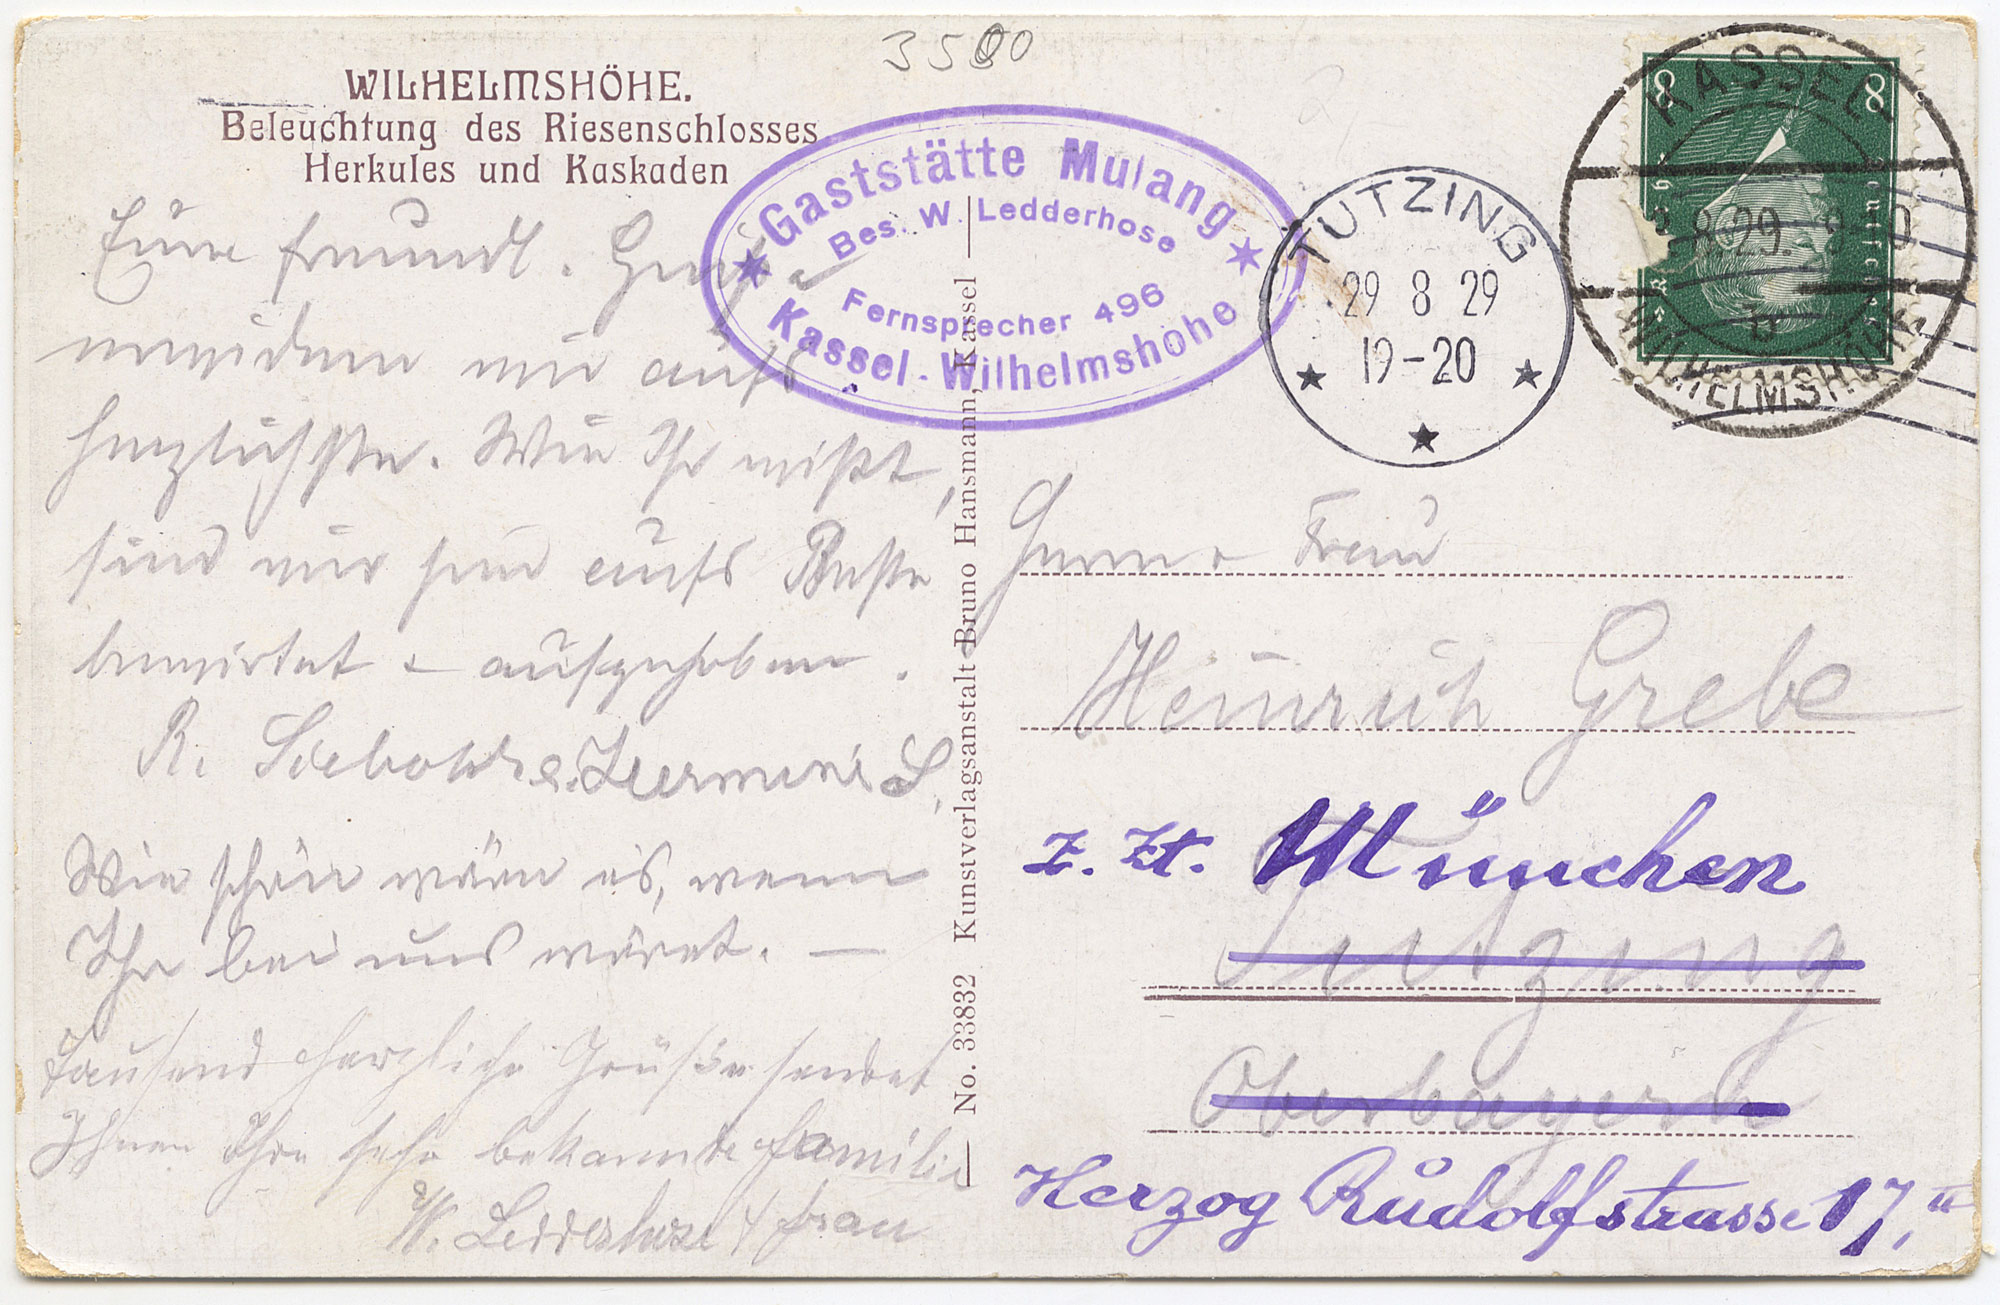 3500
WILHELMSHÖHE.
Beleuchtung des Riesenschlosses
Herkules und Kaskaden
Gaststätte Mulang
Bes. W. Ledderhose
Fernsprecher 496
Kassel-Wilhelmshöhe
TUTZING
29 8 29
19-20
KASSEL
8.29.
WILHELMSHÖHE
8 8
Eure freundl. Grüße
erwidern wir aufs
herzlichste. Wie Ihr wißt,
sind wir hier aufs Beste
bewirtet + aufgehoben.
R. Siebold
Wie schön wäre es, wenn
Ihr bei uns wäret. —
Tausend herzliche Grüße sendet
Ihnen Ihre sehr bekannte Familie
W. Ledderhose & Frau
No. 33832 Kunstverlagsanstalt Bruno Hansmann, Kassel
Frau
Heinrich Grebe
z. Zt. München
Tutzing
Oberbayern
Herzog Rudolfstrasse 17, II